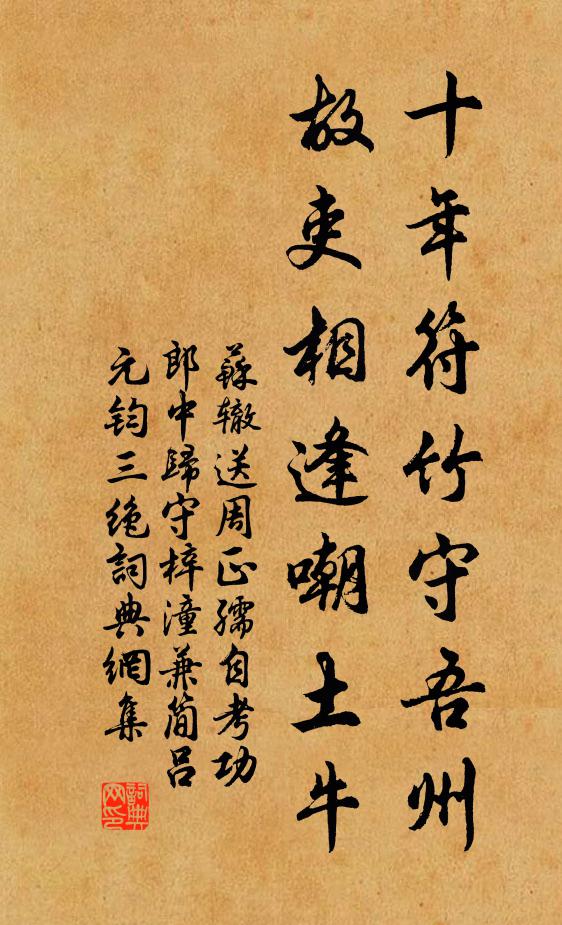 十年符竹守吾州
故吏相逢嘲土牛
蘇辙送周正孺自考功
郎中歸守梓潼兼简吕
元钧三绝詞典網集
詞典网印